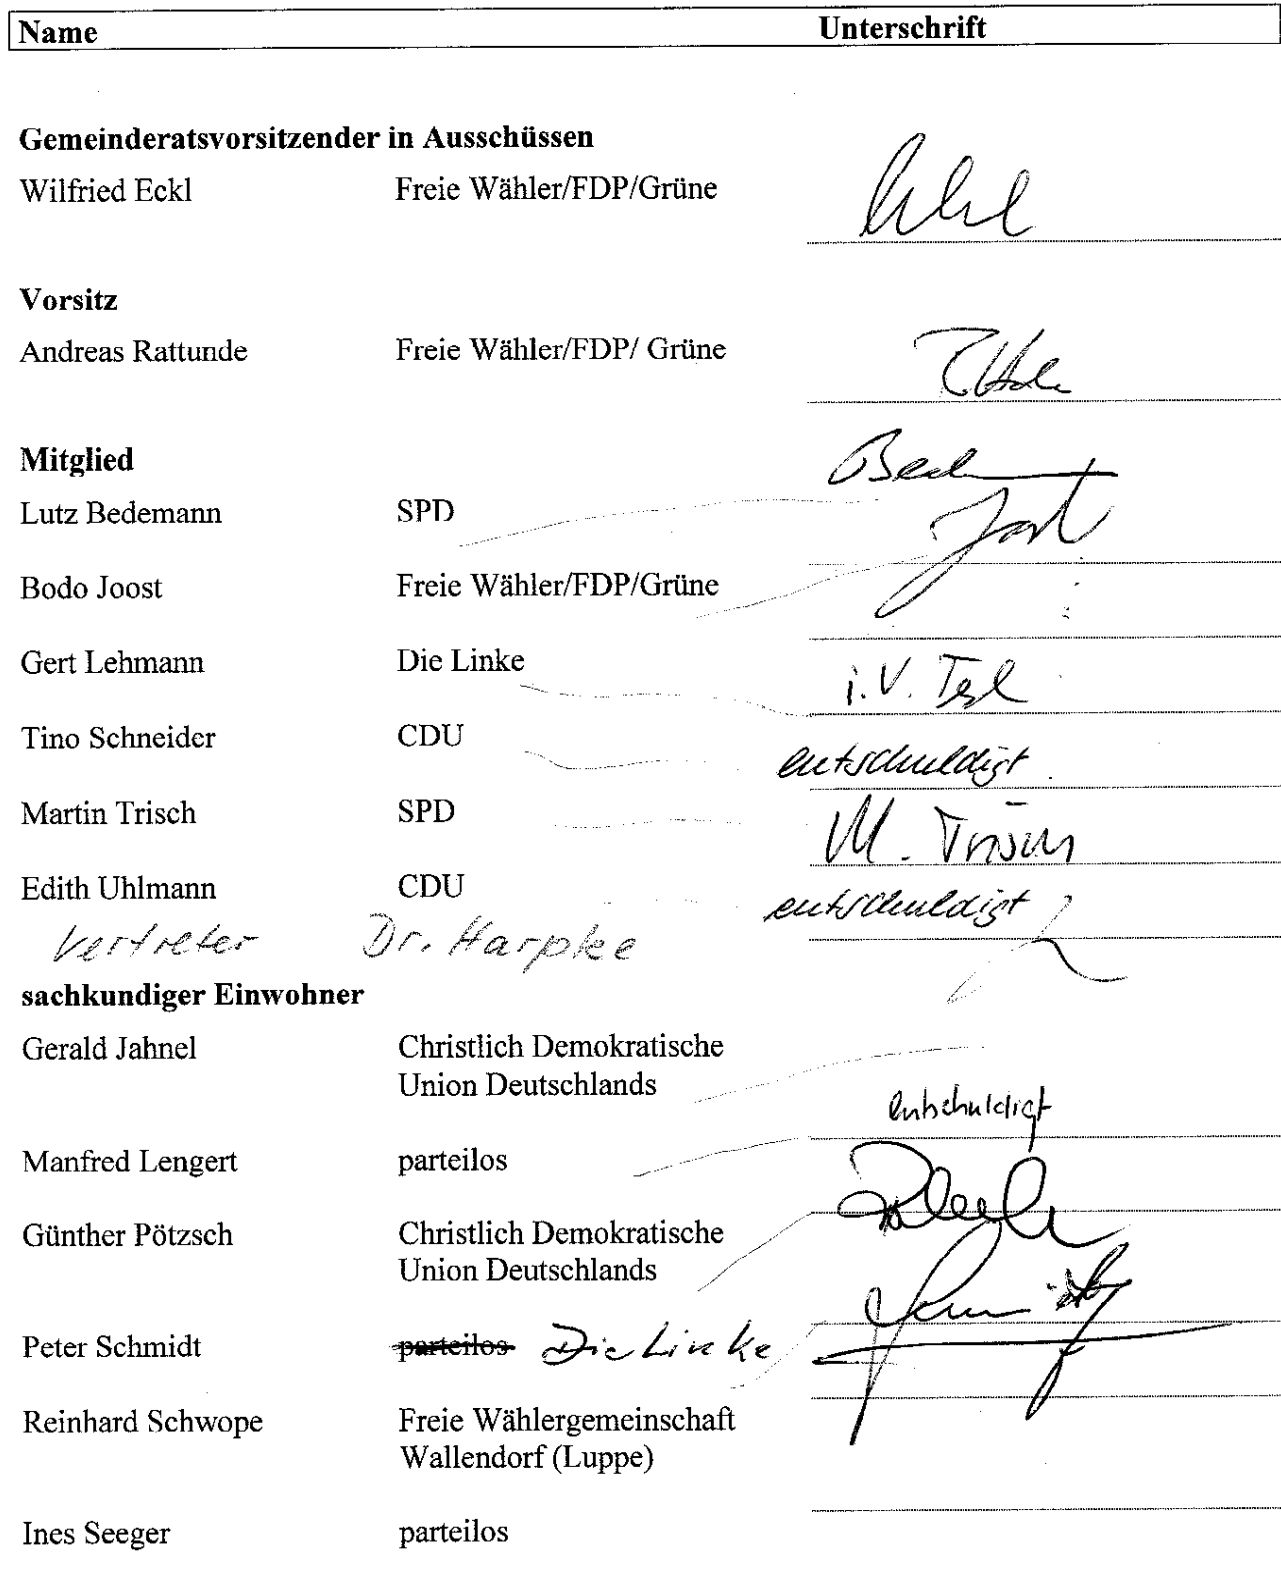 Name Unterschrift
Gemeinderatsvorsitzender in Ausschüssen
Wilfried Eckl Freie Wähler/FDP/Grüne
Vorsitz
Andreas Rattunde Freie Wähler/FDP/ Grüne
Mitglied
Lutz Bedemann SPD
Bodo Joost Freie Wähler/FDP/Grüne
Gert Lehmann Die Linke i.V.
Tino Schneider CDU entschuldigt
Martin Trisch SPD M. Trisch
Edith Uhlmann CDU entschuldigt
Vertreter Dr. Harpke
sachkundiger Einwohner
Gerald Jahnel Christlich Demokratische
Union Deutschlands
entschuldigt
Manfred Lengert parteilos
Günther Pötzsch Christlich Demokratische
Union Deutschlands
Peter Schmidt parteilos Die Linke
Reinhard Schwope Freie Wählergemeinschaft
Wallendorf (Luppe)
Ines Seeger parteilos